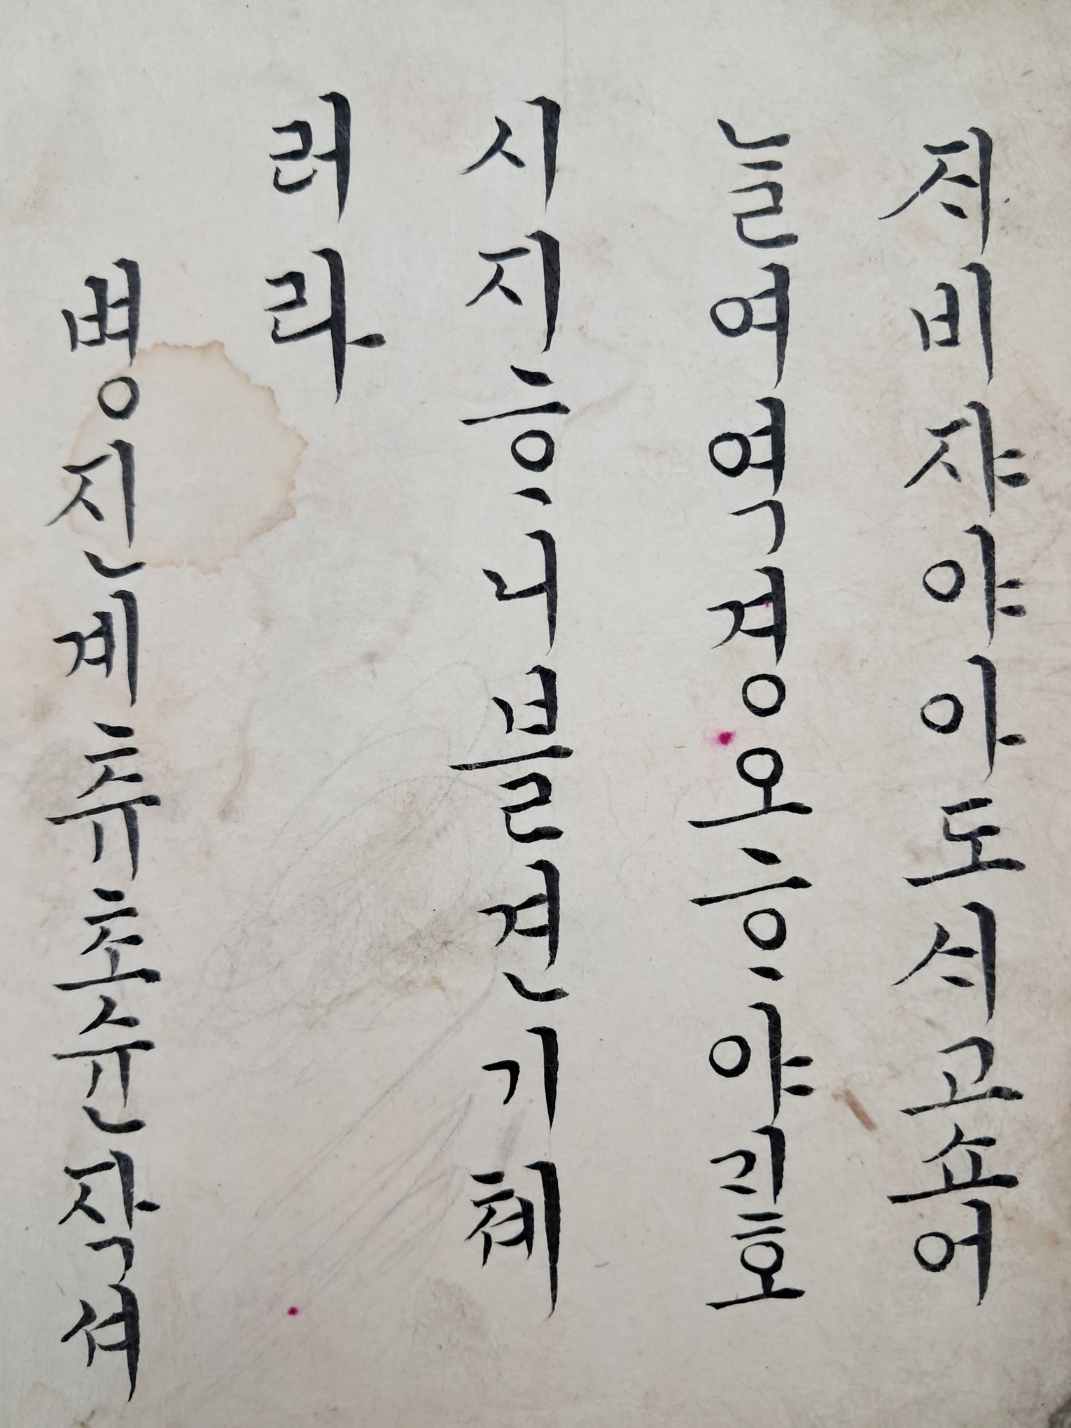 져비쟈야아도셔고쇼어
늘여역경오흥야리호
시지흥니블견기쳬
러라
병진계츄초슌작셔